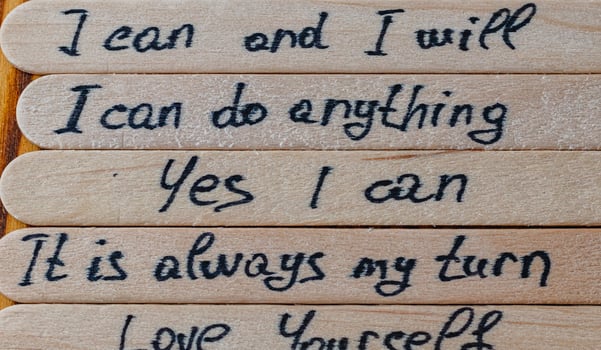 I can and I will
I can do anything
Yes I can
It is always my turn
Love Yourself